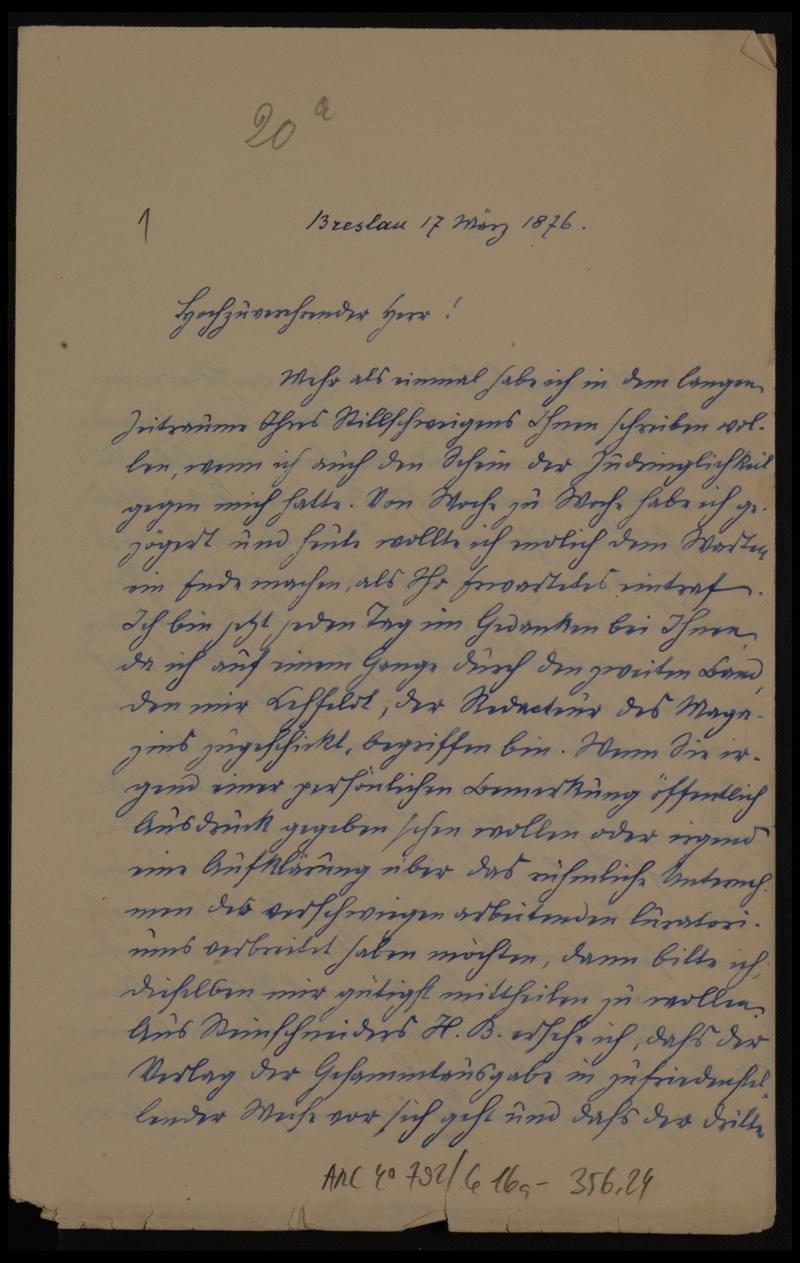 20 a
1
Breslau 17 März 1876.
Hochzuverehrender Herr!
Mehr als einmal habe ich in dem langen
Zeitraume Ihres Stillschweigens Ihnen schreiben wol-
len, wenn ich auch den Schein der Zudringlichkeit
gegen mich hatte. Von Woche zu Woche habe ich ge-
zögert und heute wollte ich endlich dem Warten
ein Ende machen, als Ihr Erwartetes eintraf.
Ich bin jetzt jeden Tag im Gedanken bei Ihnen,
da ich auf einem Gange durch den zweiten Band,
den mir Lehfeldt, der Redacteur des Maga-
zins zugeschickt, begriffen bin. Wenn Sie ir-
gend einer persönlichen Bemerkung öffentlich
Ausdruck gegeben sehen wollen oder irgend
eine Aufklärung über das rühmliche Unterneh-
men des verschwiegen arbeitenden Curatori-
ums verbreitet haben möchten, dann bitte ich,
dieselben mir gütigst mittheilen zu wollen.
Aus Steinschneiders H. B. ersehe ich, dass der
Verlag der Gesammtausgabe in zufriedenstel-
lender Weise vor sich geht und dass der dritte
ARC 4° 792/G 16a- 356.24